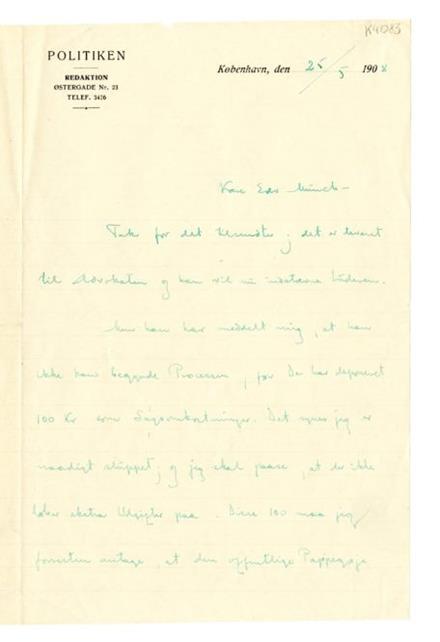 K4083
POLITIKEN
REDAKTION
ØSTERGADE Nr. 23
TELEF. 3476
København, den 25/5 1908
Kære Edv Munch –
Tak for det tilsendte; det er leveret
til Advokaten og han vil nu
Men han har meddelt mig, at han
ikke kan begynde Processen, før De har deponeret
100 Kr som Sagsomkostninger. Det synes jeg er
naadigt sluppet; og jeg skal passe, at der ikke
løber ekstra Udgifter paa. Disse 100 maa jeg
forresten antage, at den offentlige